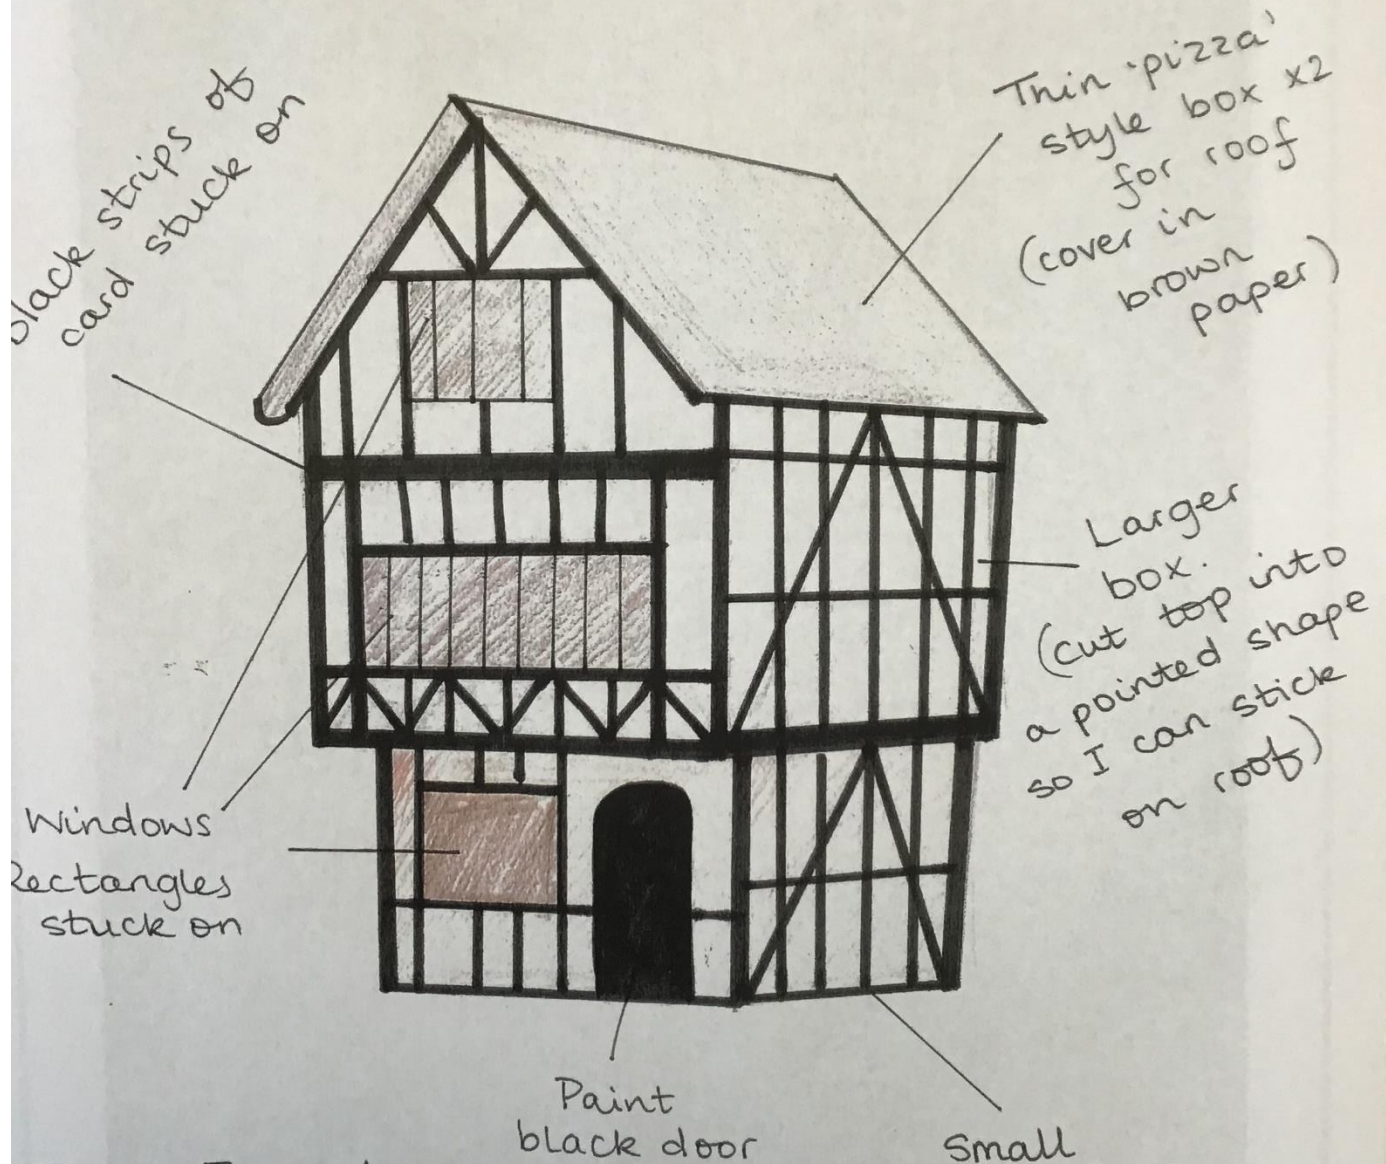 black strips of
card stuck on
Thin 'pizza'
style box x2
for roof
(cover in
brown
paper)
Larger
box.
(cut top into
a pointed shape
so I can stick
on roof)
Windows
Rectangles
stuck on
Paint
black door
Small